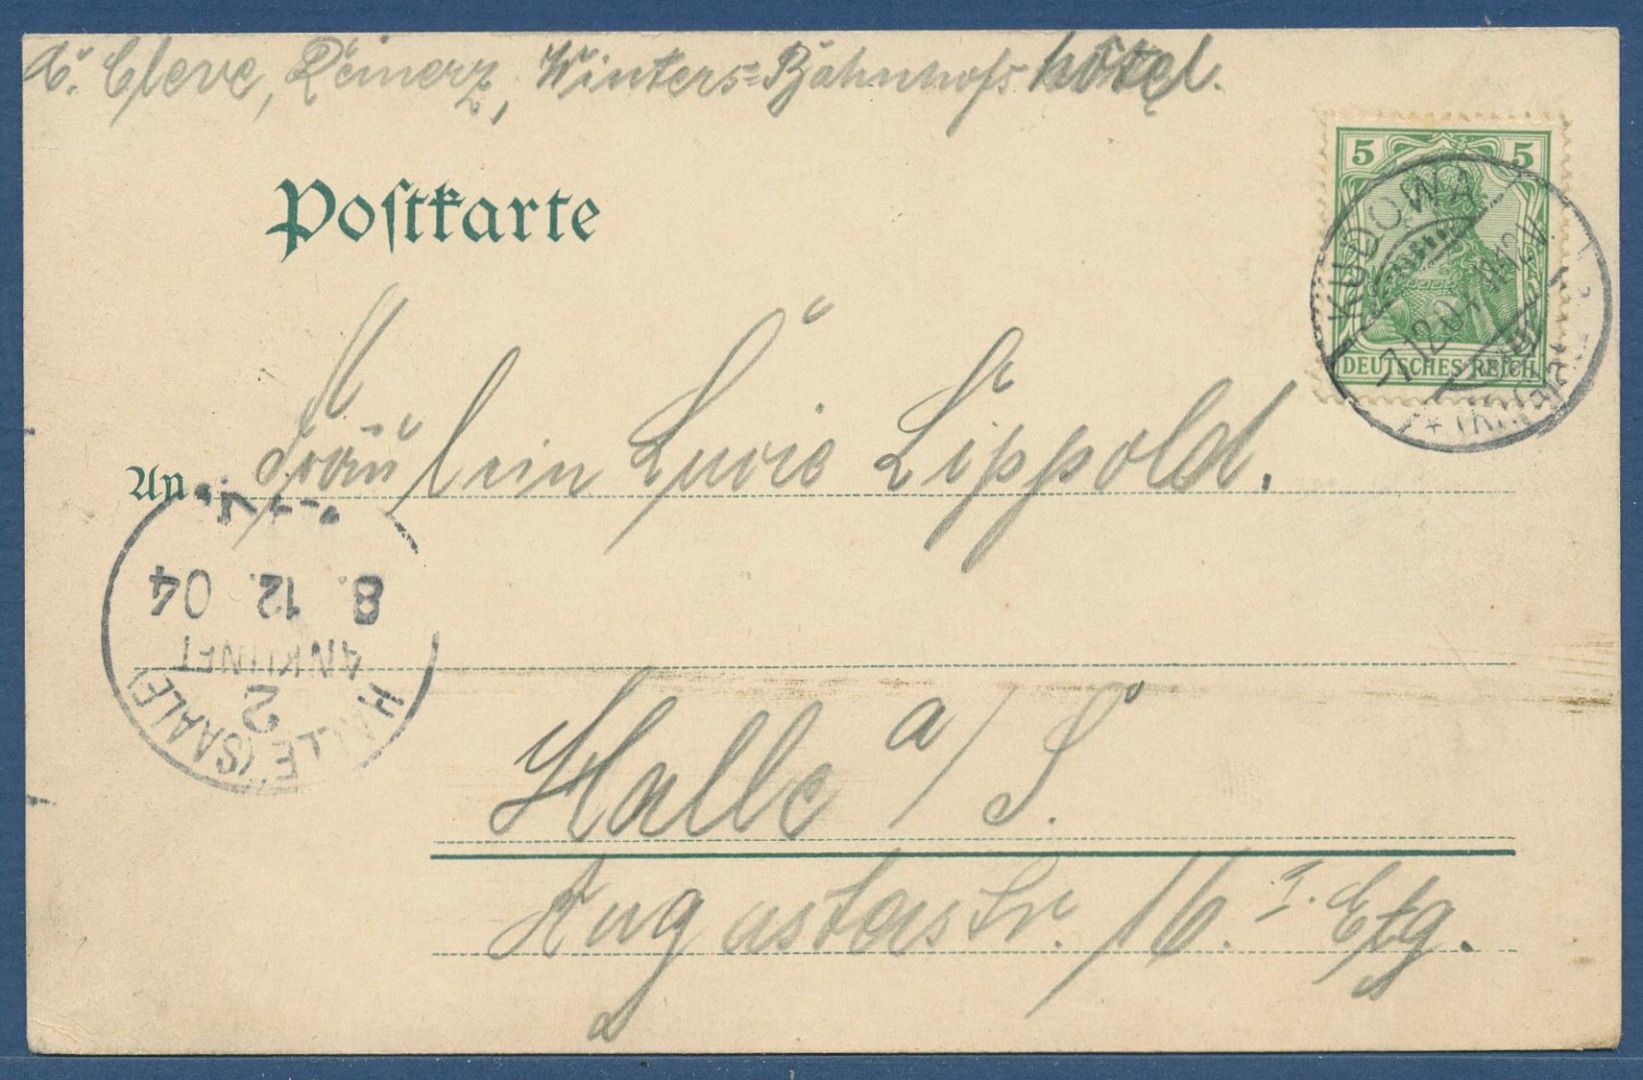 Cleve, Reinerz, Winters=Bahnhofshôtel.
Postkarte
5 5
DEUTSCHES REICH
KUDOWA
7.12.04.
An Fräulein Lucie Lippold.
8. 12. 04
ANKUNFT
2
HALLE (SAALE)
Halle a/S.
Augustastr. 16. I. Etg.